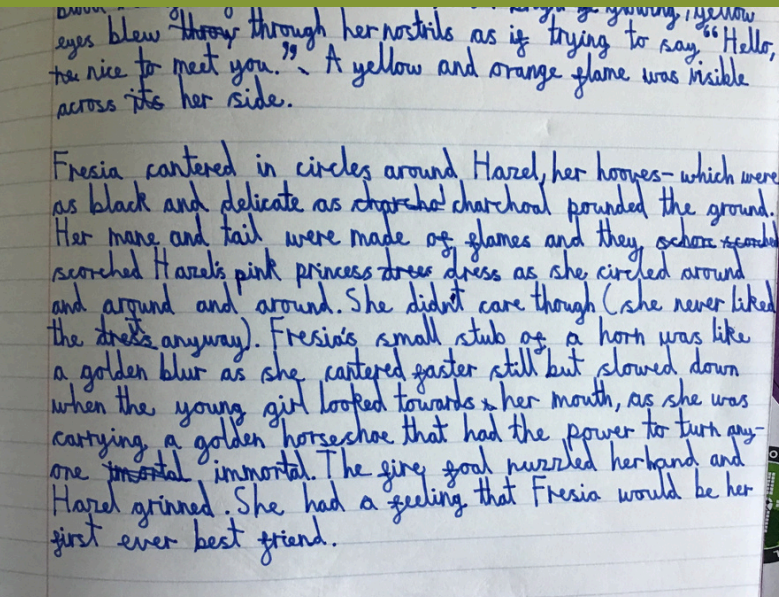 growing, yellow
eyes blew throw through her nostrils as if trying to say, "Hello,
nice to meet you." A yellow and orange flame was visible
across its her side.
Fresia cantered in circles around Hazel, her hooves - which were
as black and delicate as charchol charchoal pounded the ground.
Her mane and tail were made of flames and they schorc scorched
scorched Hazel's pink princess drees dress as she circled around
and around and around. She didn't care though (she never liked
the dress anyway). Fresia's small stub of a horn was like
a golden blur as she cantered faster still but slowed down
when the young girl looked towards her mouth, as she was
carrying a golden horseshoe that had the power to turn any-
one imortal immortal. The fire foal nuzzled her hand and
Hazel grinned. She had a feeling that Fresia would be her
first ever best friend.